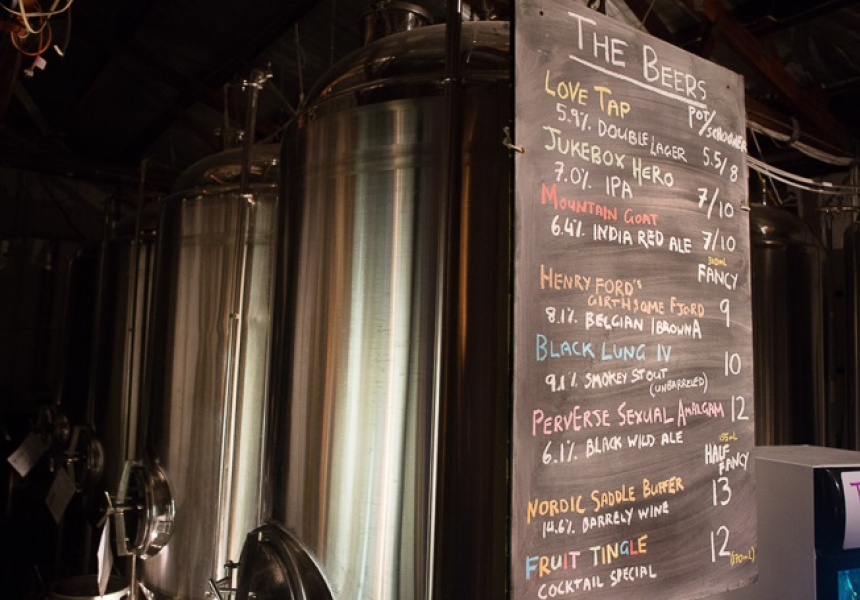 THE BEERS
POT/SCHOONER
LOVE TAP
5.9% DOUBLE LAGER 5.5/8
JUKEBOX HERO
7.0% IPA 7/10
MOUNTAIN GOAT
6.4% INDIA RED ALE 7/10
FANCY
HENRY FORD'S
GIRTHSOME FJORD 9
8.1% BELGIAN/BROWNA
BLACK LUNG IV 10
9.1% SMOKEY STOUT
(UNBARRELED)
PERVERSE SEXUAL AMALGAM 12
6.1% BLACK WILD ALE
HALF
FANCY
NORDIC SADDLE BUFFER 13
14.6% BARRELY WINE
FRUIT TINGLE 12
COCKTAIL SPECIAL